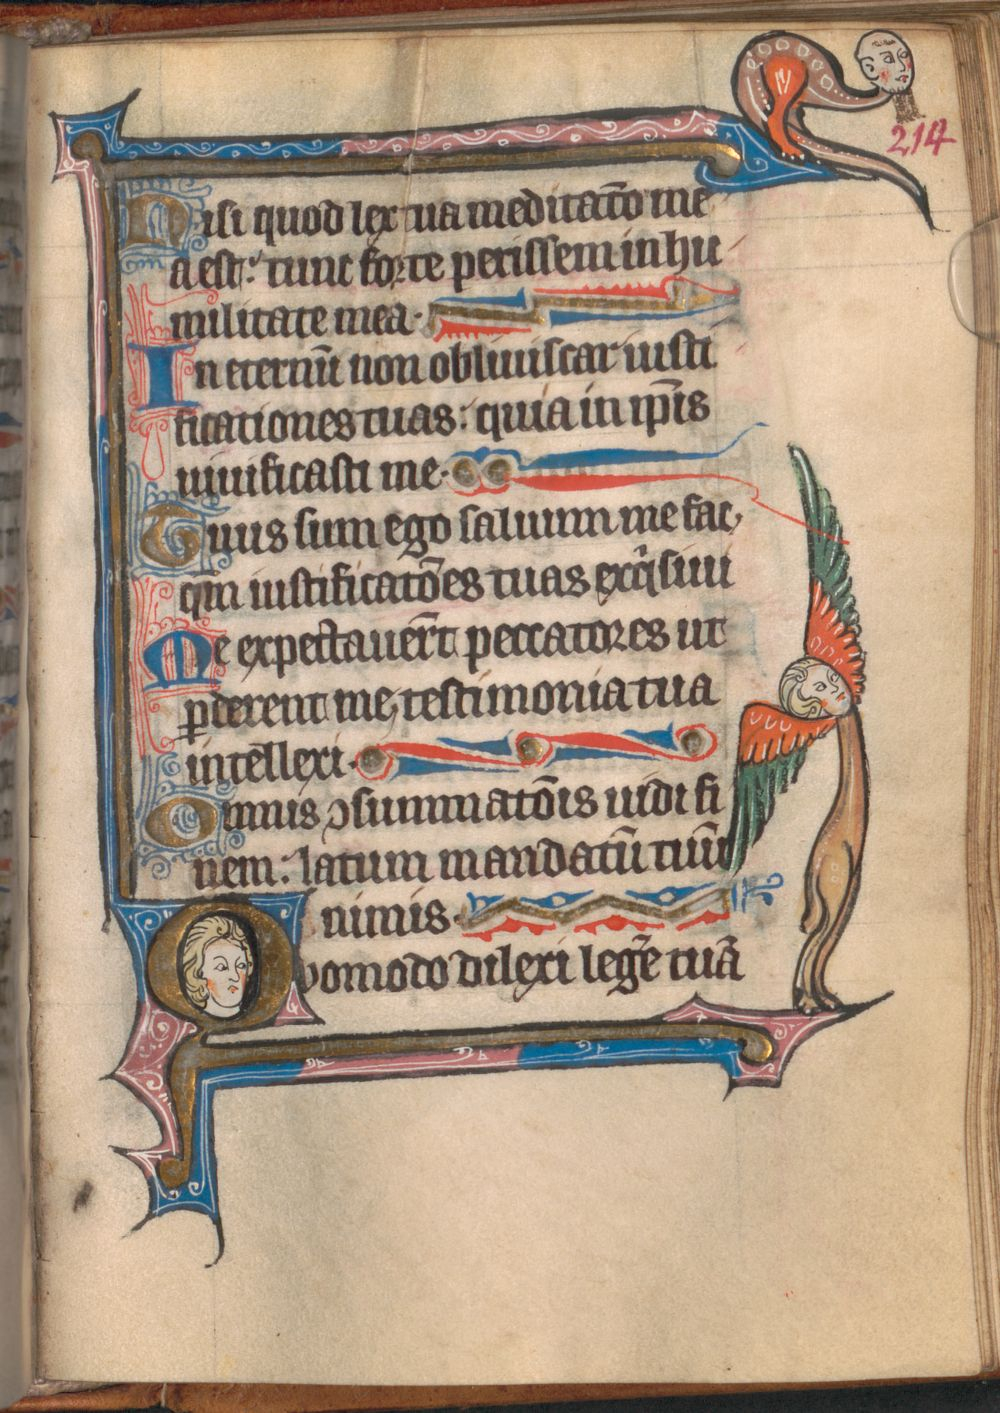 214
Nisi quod lex tua meditac̄o me
a est: tunc forte perissem in hu
militate mea.
In eternū non obliuiscar iusti
ficationes tuas: quia in ip̄is
uiuificasti me.
Tuus sum ego saluum me fac,
qm̄ iustificatōes tuas exq̇siui
Me expectauer̄t peccatores ut
ꝑderent me, testimonia tua
intellexi.
Omnis ꝯsummatōis uidi fi
nem: latum mandatū tuū
nimis.
Quomodo dilexi legē tuā